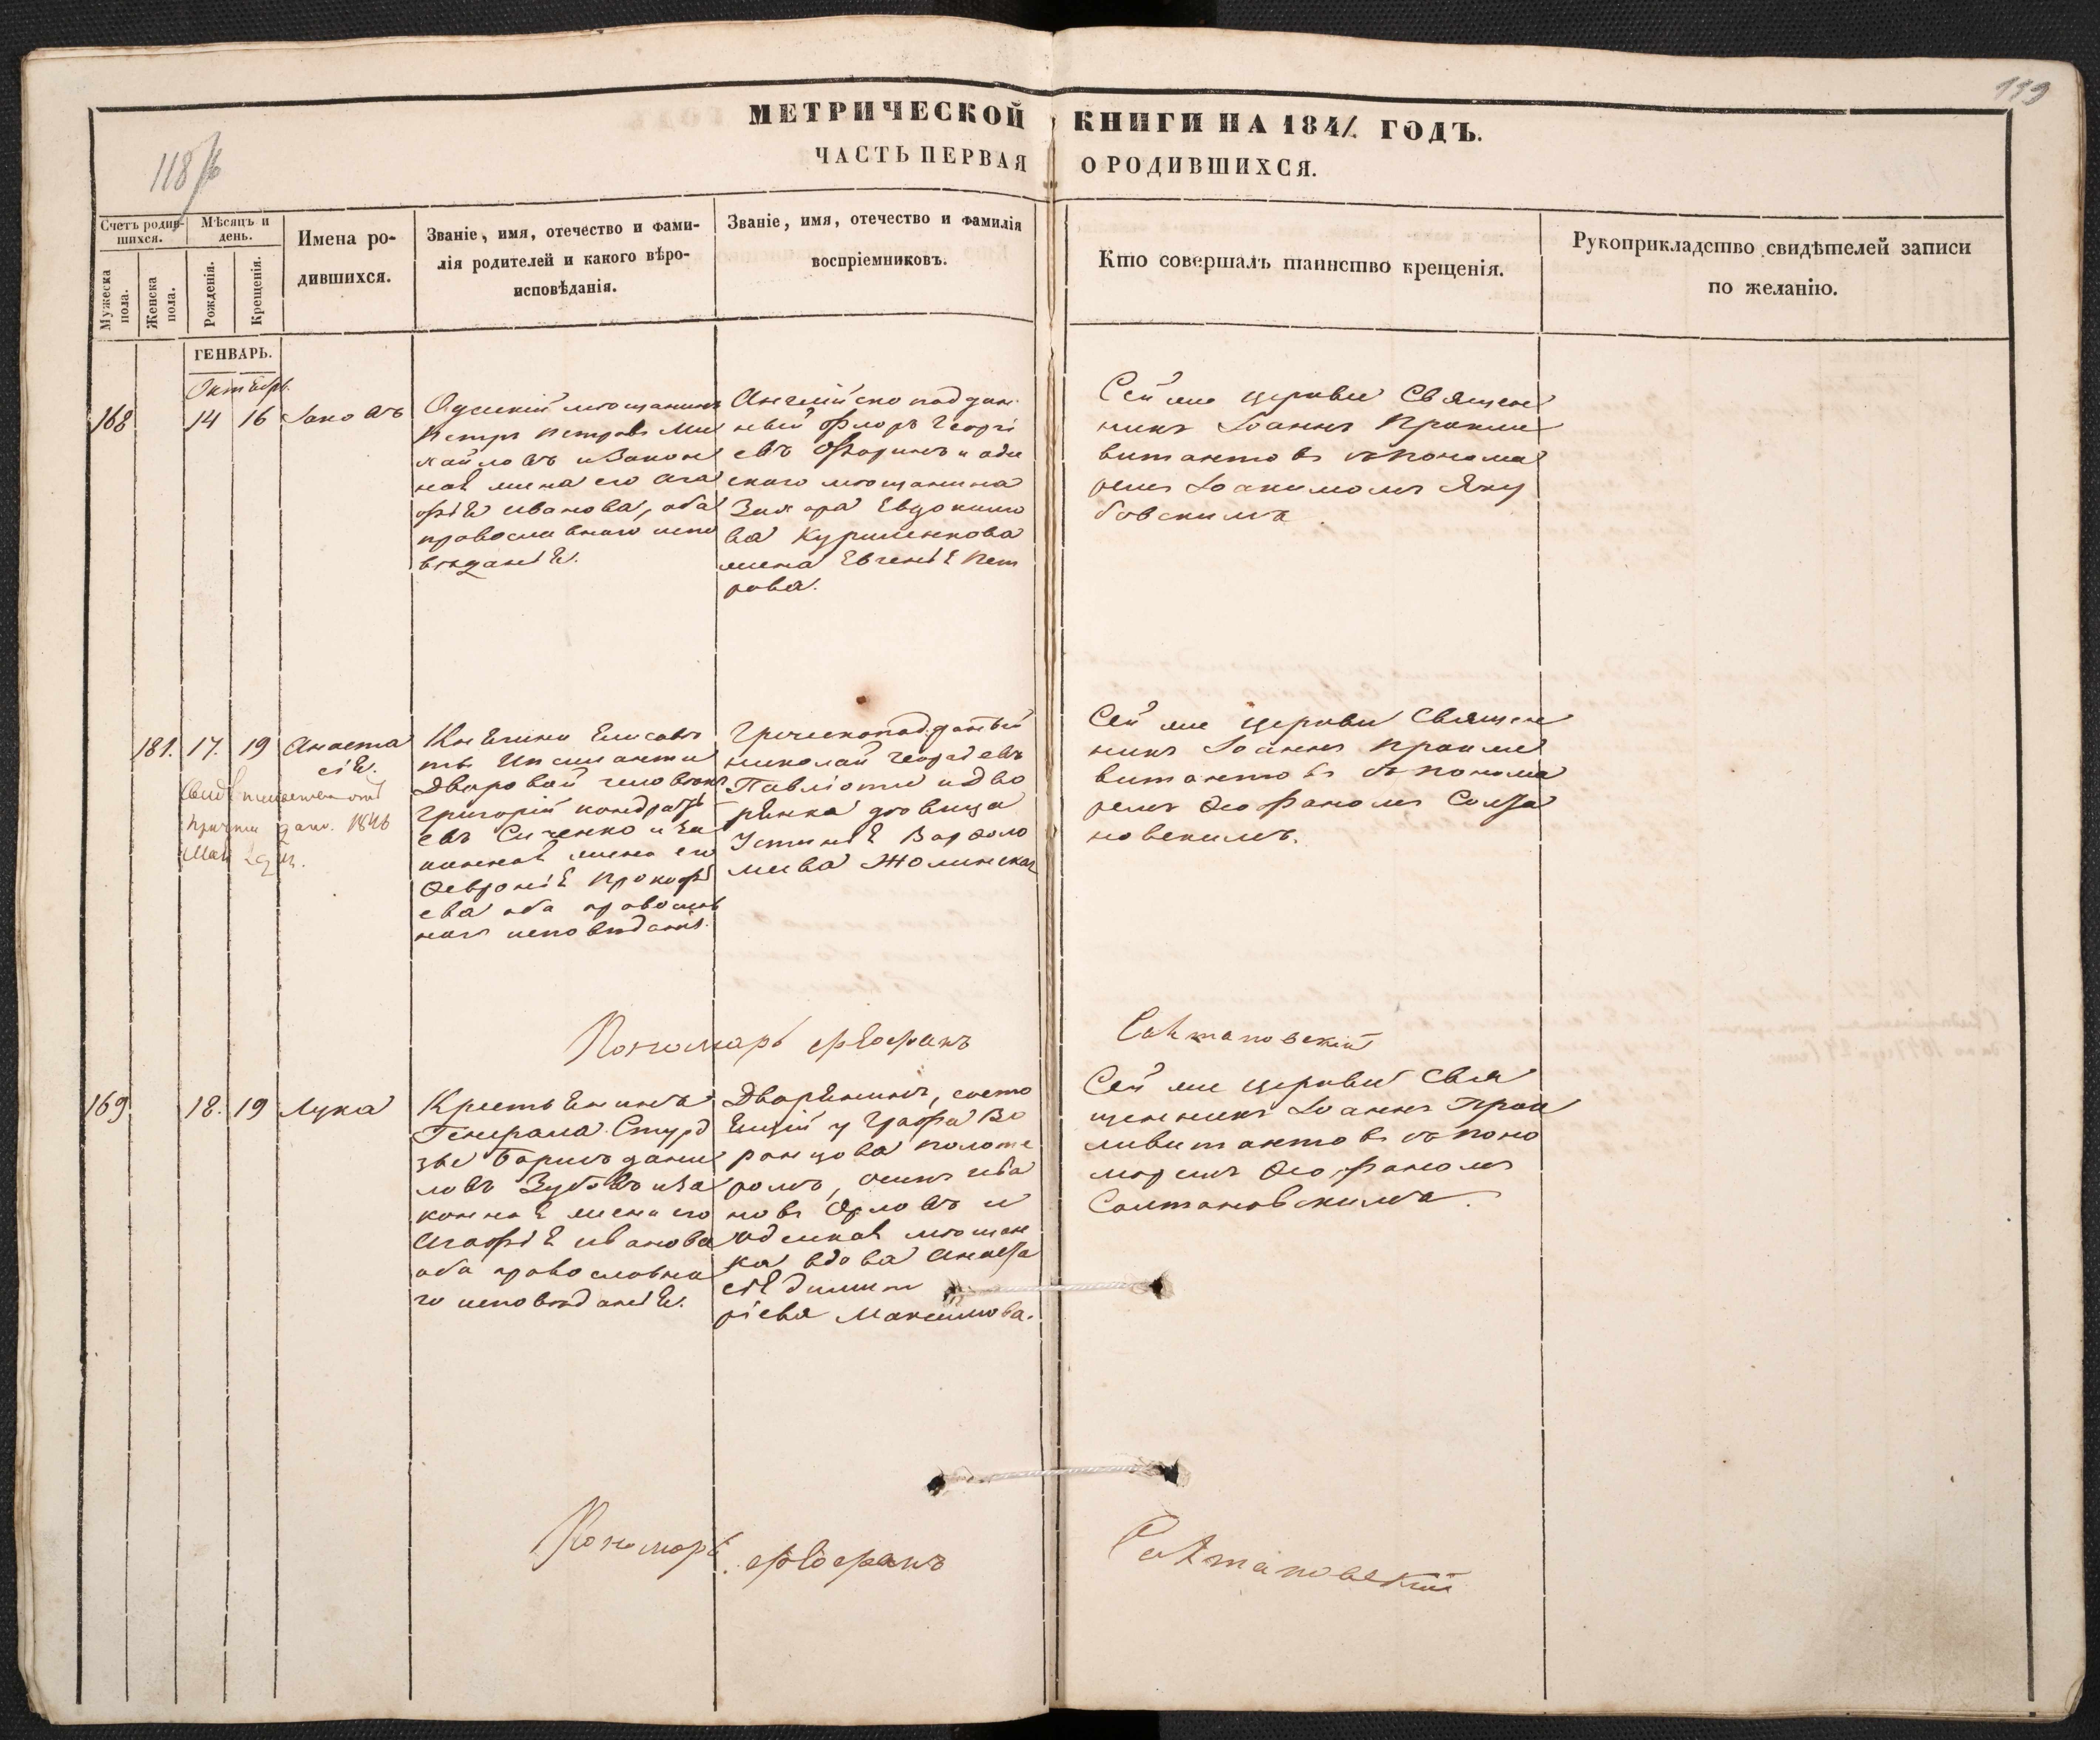 139
МЕТРИЧЕСКОЙ КНИГИ НА 1841. ГОДЪ.
118
ЧАСТЬ ПЕРВАЯ О РОДИВШИХСЯ.
Счетъ родив-
шихся.
Мужеска пола.
Женска пола.
Мѣсяцъ и
день.
Рожденія.
Крещенія.
Имена ро-
дившихся.
Званіе, имя, отечество и фами-
лія родителей и какого вѣро-
исповѣданія.
Званіе, имя, отечество и фамилія
воспріемниковъ.
Кто совершалъ таинство крещенія.
Рукоприкладство свидѣтелей записи
по желанію.
ГЕНВАРЬ.
Октябрь.
168
14 16
Іаковъ
Одескій мѣщанинъ
Петръ Петровъ Ми
хайловъ и Закон
ная жена его Ага
фія Иванова, оба
православнаго испо
вѣданія.
Англійско поддан
ный Флоръ Георгі
евъ и оде
скаго мѣщанина
Захара Евдокимо
ва Куриленкова
жена Евгенія Пет
рова.
Сей же церкви Священ
никъ Іоаннъ Прокли
витантовъ съ понома
ремъ Іоакимомъ Яку
бовскимъ.
181. 17. 19
Анаста
сія.
Свидѣтельство
причта дано. 1846
Мая
Княгини Елисавѣ
ты Ипсиланти
Дворовый человѣкъ
Григорій Кондратъ
евъ Сиченко и за
конная жена его
Февронія Прокофі
ева оба православ
наго исповѣданія.
Греческоподданый
Николай Георгіевъ
Павліоти и Дво
рянка дѣвица
Устинія Варфоло
меева Жолинская
Сей же церкви Священ
никъ Іоаннъ Прокли
витантовъ съ понома
ремъ Ѳеофаномъ Солта
новскимъ.
Пономарь Ѳеофанъ Солтановскій
169. 18. 19
Лука
Крестьянинъ
Генерала Стурд
зы Борисъ Дани
ловъ Зубовъ и За
конная жена его
Агафія Иванова
оба православна
го исповѣданія.
Дворянинъ, состо
ящій у Графа Во
ронцова
Осипъ Ива
новъ Орловъ и
Одеская мѣщан
ка вдова Анаста
сія Димит
ріева Максимова.
Сей же церкви Свя
щенникъ Іоаннъ Прок
ливитантовъ съ поно
маремъ Ѳеофаномъ
Солтановскимъ.
Пономарь Ѳеофанъ Солтановскій